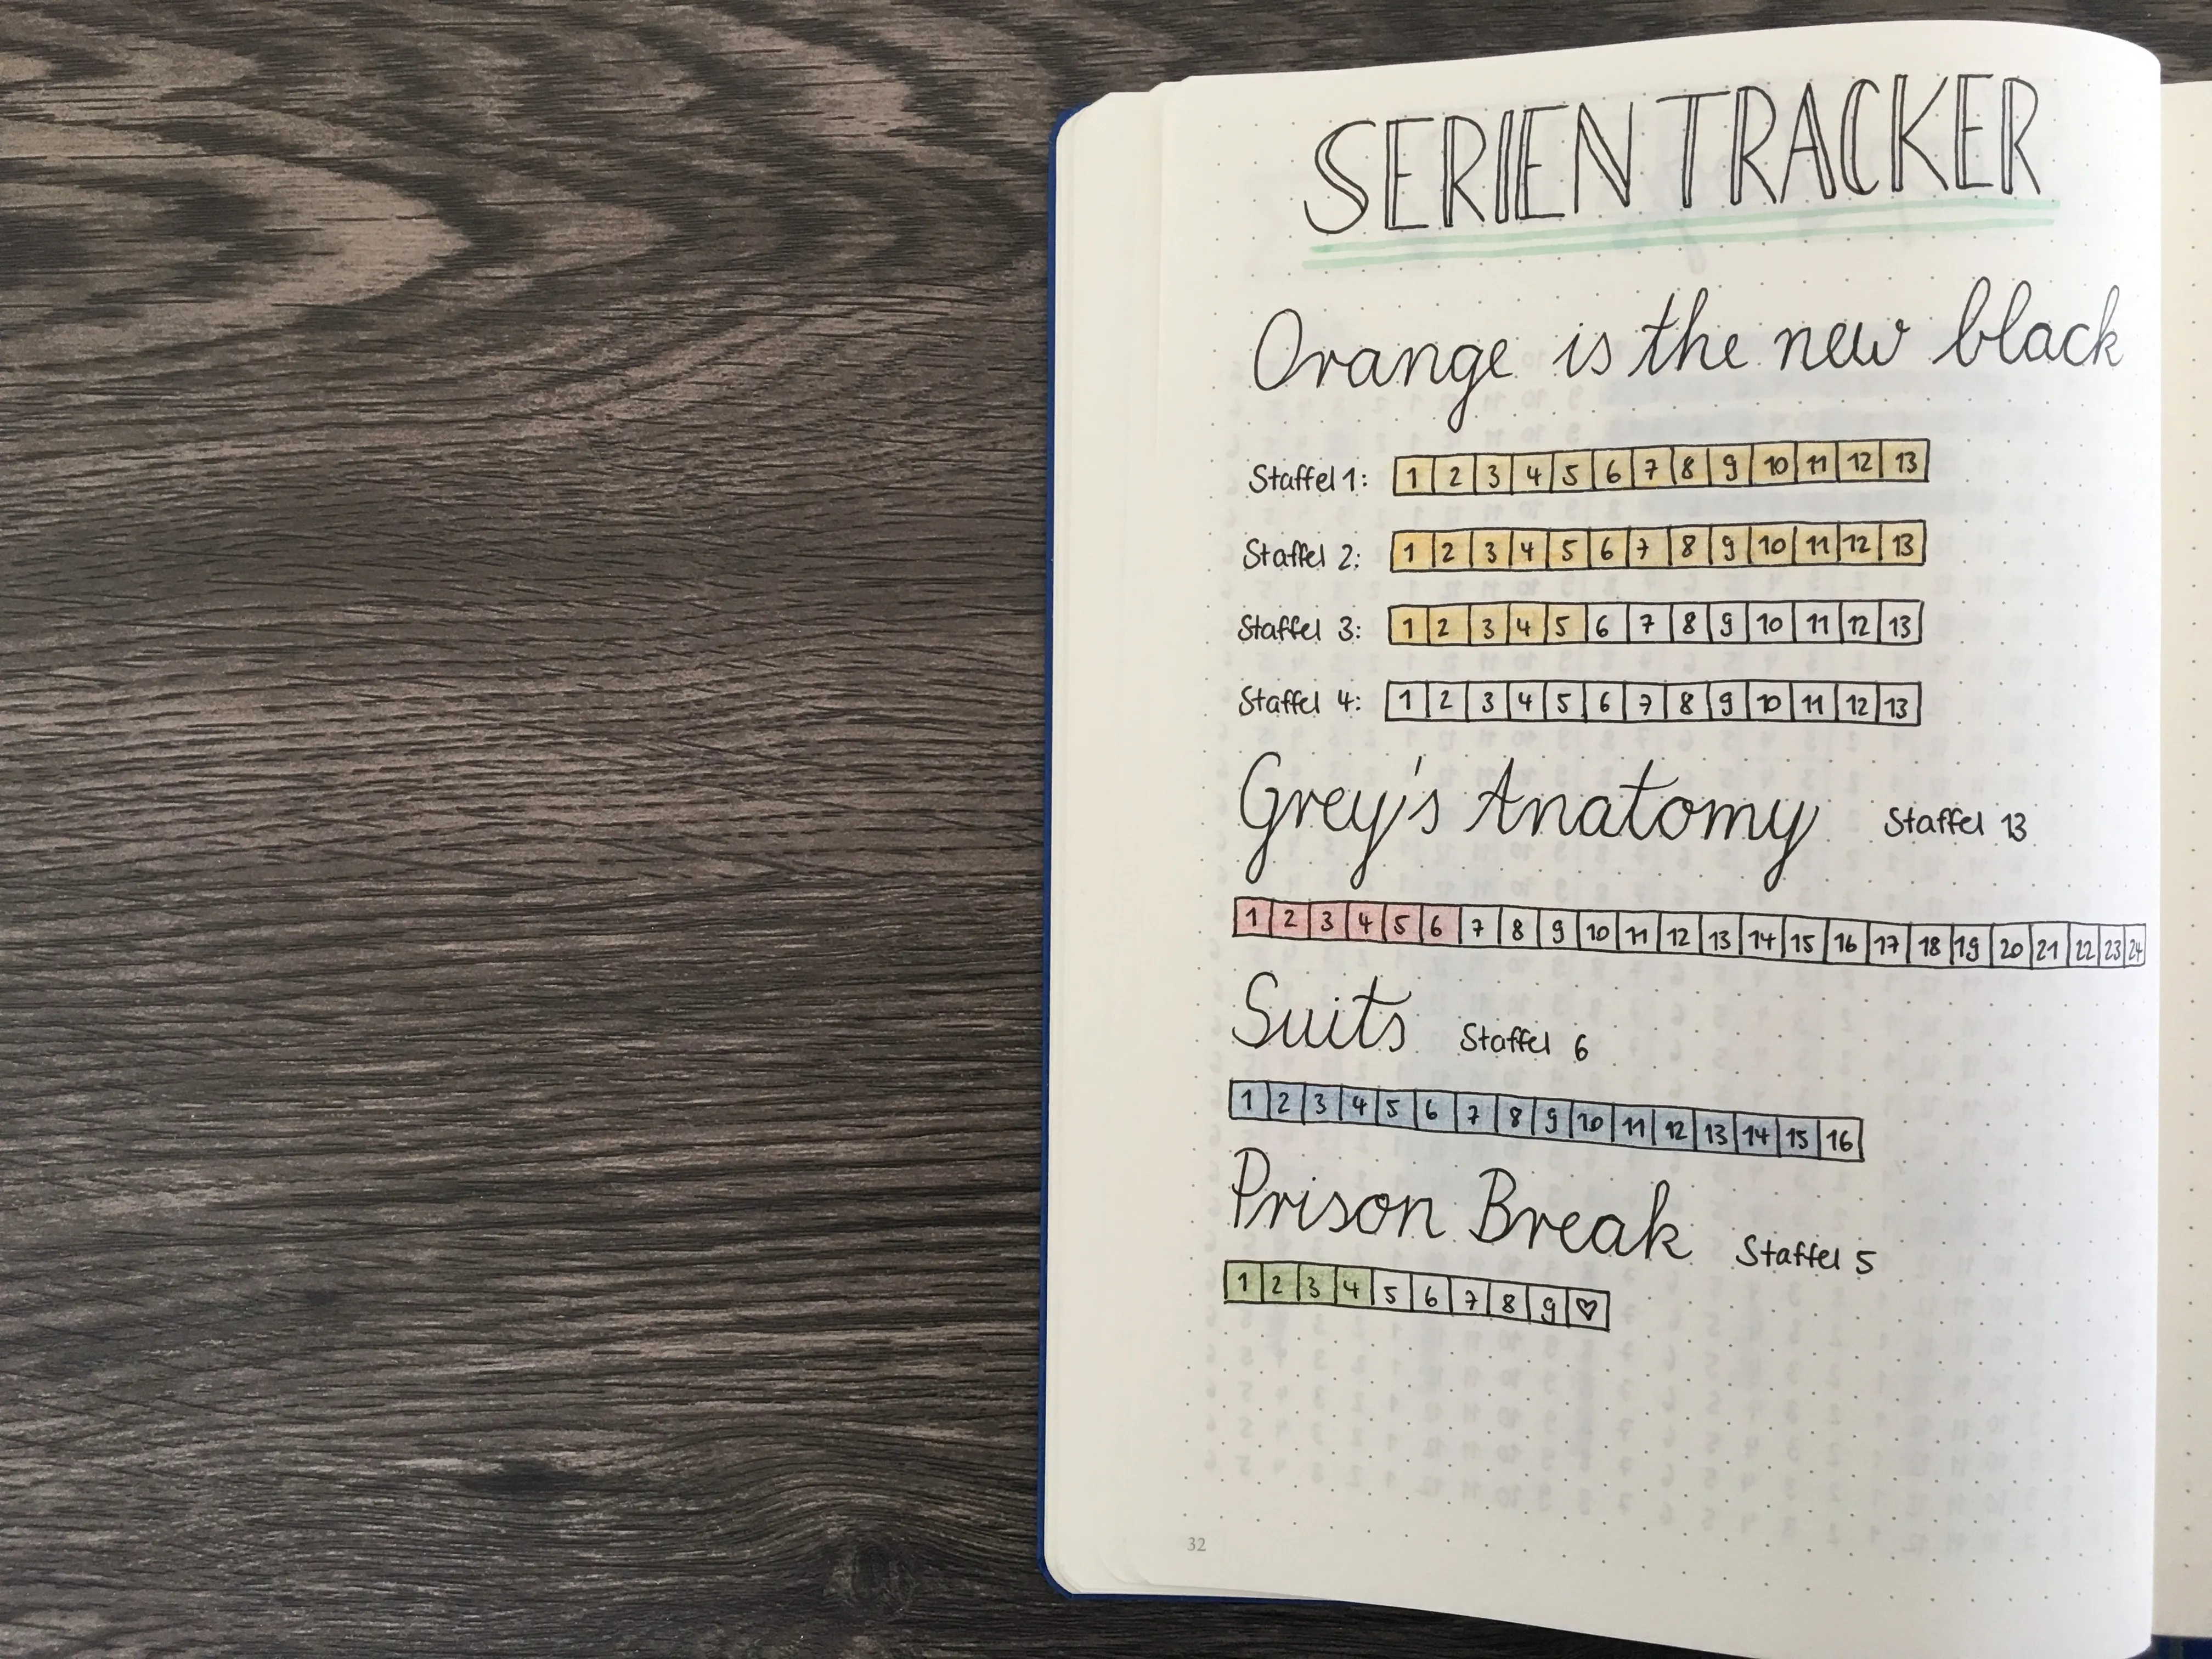 SERIEN TRACKER
Orange is the new black
Staffel 1: 1 2 3 4 5 6 7 8 9 10 11 12 13
Staffel 2: 1 2 3 4 5 6 7 8 9 10 11 12 13
Staffel 3: 1 2 3 4 5 6 7 8 9 10 11 12 13
Staffel 4: 1 2 3 4 5 6 7 8 9 10 11 12 13
Grey's Anatomy Staffel 13
1 2 3 4 5 6 7 8 9 10 11 12 13 14 15 16 17 18 19 20 21 22 23 24
Suits Staffel 6
1 2 3 4 5 6 7 8 9 10 11 12 13 14 15 16
Prison Break Staffel 5
1 2 3 4 5 6 7 8 9 ♡
32